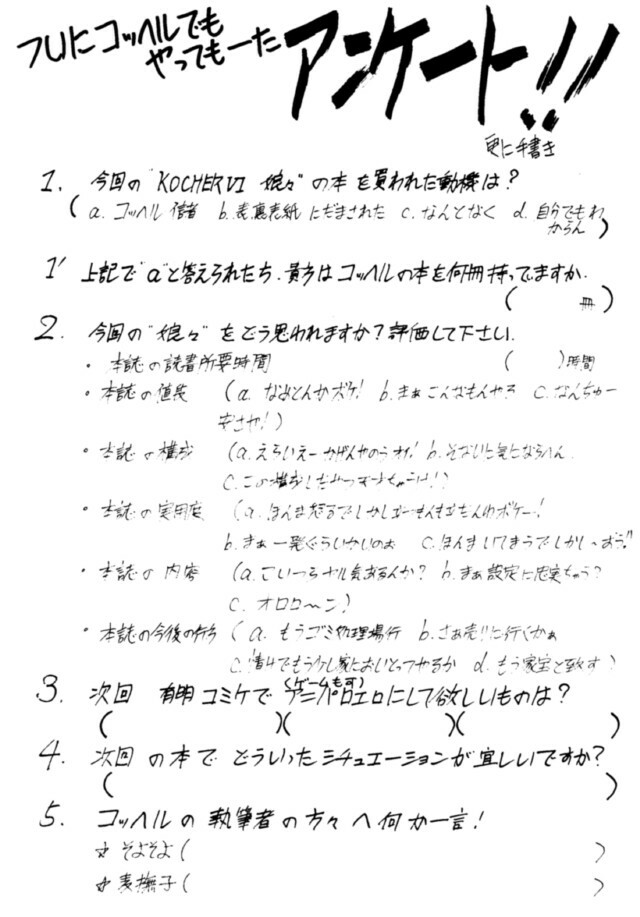 フリにコッヘルでも
やってもーた
アンケート!!
更に手書き
1. 今回の"KOCHER VI 娘々"の本を買われた動機は?
(a. コッヘル信者 b. 表裏表紙にだまされた c. なんとなく d. 自分でもわ
からん)
1' 上記で"a"と答えられたち、貴方はコッヘルの本を何冊持ってますか.
( 冊)
2. 今回の"娘々"をどう思われますか?評価して下さい.
・本誌の読書所要時間 ( )時間
・本誌の値段 (a. なめとんかボケ! b. まぁこんなもんやろ c. なんちゅー
安さや!)
・本誌の構成 (a. えらいえーかげんやのうオイ! b. そないに気にならへん
c. この構成しだみつ
・本誌の実用度 (a. ほんま怒るでしかし
b. まぁ一発ぐらいかいのぉ c. ほんまいてまうでしかし〜おう!!
・本誌の内容 (a. こいつらやる気あるんか? b. まぁ設定に忠実ちゃう?
c. オロロ〜ン)
・本誌の今後の行方 (a. もうゴミ処理場行 b. さぁ売りに行くかぁ
c. 情けでもう少し家においとってやるか d. もう家宝と致す)
3. 次回 有明コミケでアニパロエロにして欲しいものは?
(ゲームも可)
( )( )( )
4. 次回の本でどういったシチュエーションが宜しいですか?
( )
5. コッヘルの執筆者の方々へ何か一言!
☆そよそよ( )
☆麦撫子( )